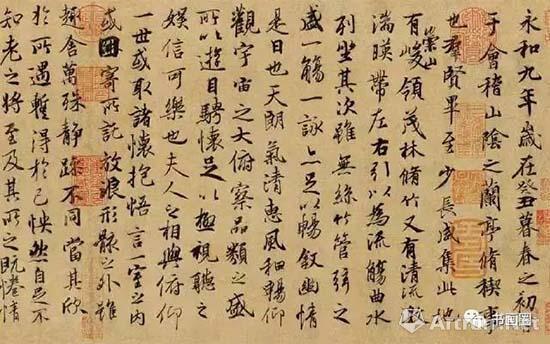 永和九年歲在癸丑暮春之初
于會稽山陰之蘭亭脩稧事
也羣賢畢至少長咸集此地
有崇山峻領茂林脩竹又有清流激
湍暎帶左右引以為流觴曲水
列坐其次雖無絲竹管弦之
盛一觴一詠亦足以暢敘幽情
是日也天朗氣清惠風和暢仰
觀宇宙之大俯察品類之盛
所以遊目騁懷足以極視聽之
娛信可樂也夫人之相與俯仰
一世或取諸懷抱悟言一室之內
或因寄所託放浪形骸之外雖
趣舍萬殊静躁不同當其欣
於所遇蹔得於己怏然自足不
知老之將至及其所之既惓情
书画圈